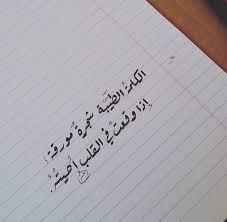 الكلمة الطيبة شجرة مورقة،
إذا وقعت في القلب أحيته.